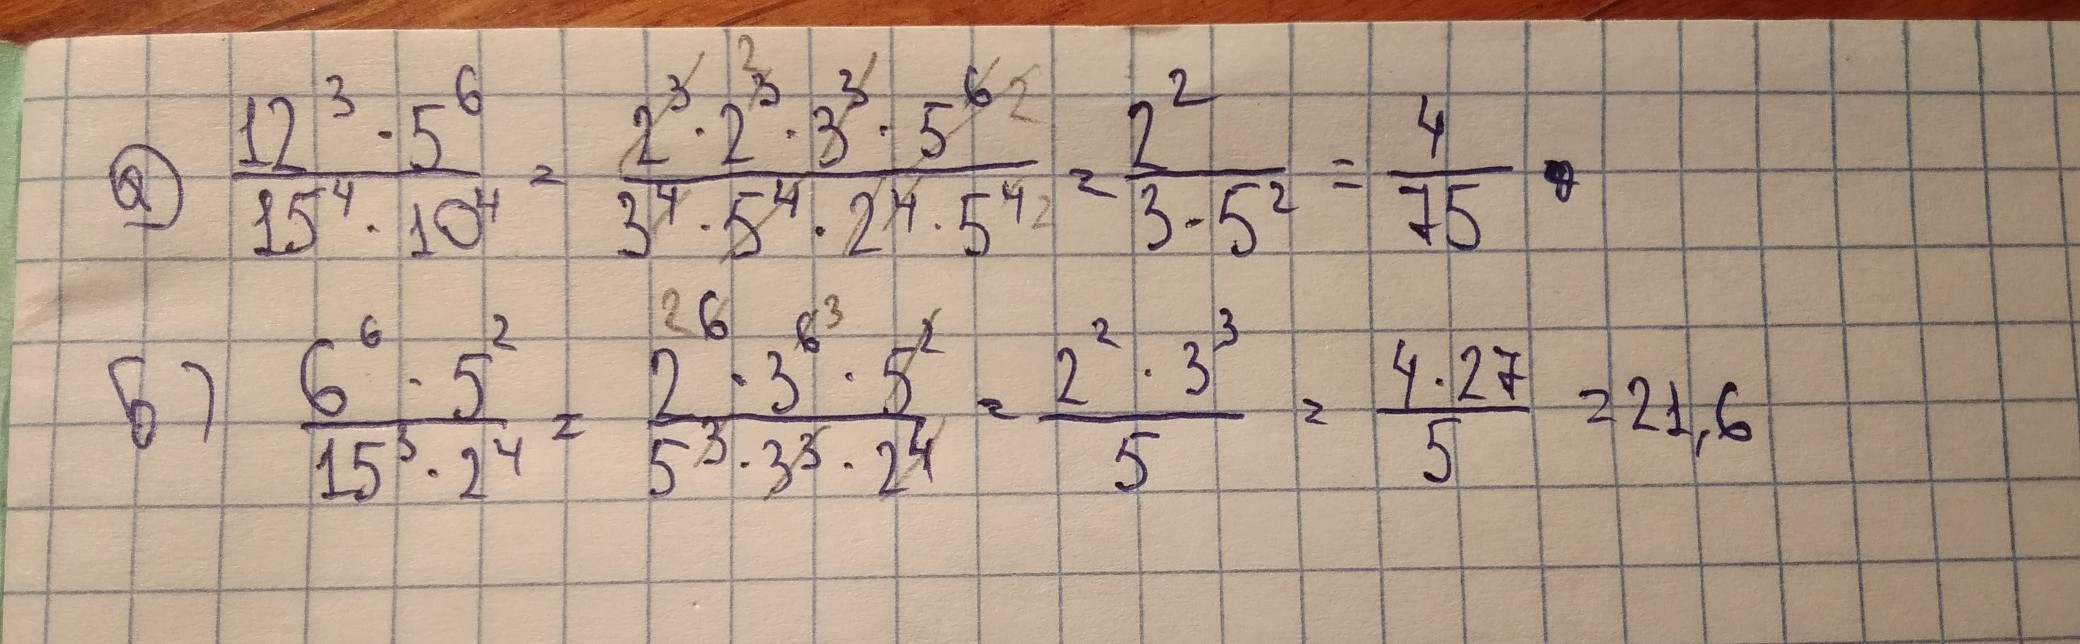 а) \frac{12^3 \cdot 5^6}{15^4 \cdot 10^4} = \frac{2^3 \cdot 2^3 \cdot 3^3 \cdot 5^6}{3^4 \cdot 5^4 \cdot 2^4 \cdot 5^4} = \frac{2^2}{3 \cdot 5^2} = \frac{4}{75}
б) \frac{6^6 \cdot 5^2}{15^3 \cdot 2^4} = \frac{2^6 \cdot 3^6 \cdot 5^2}{5^3 \cdot 3^3 \cdot 2^4} = \frac{2^2 \cdot 3^3}{5} = \frac{4 \cdot 27}{5} = 21,6